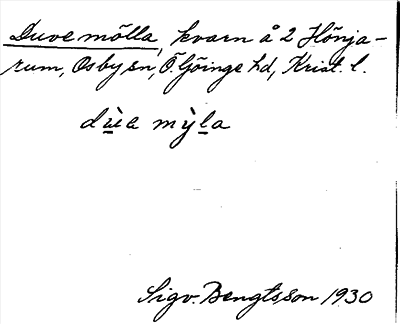 Duvemölla, kvarn å 2 Hönja-
rum, Osby sn, Ö. Göinge hd, Krist. l.
dù̱a mỳḻa
Sigv. Bengtsson 1930